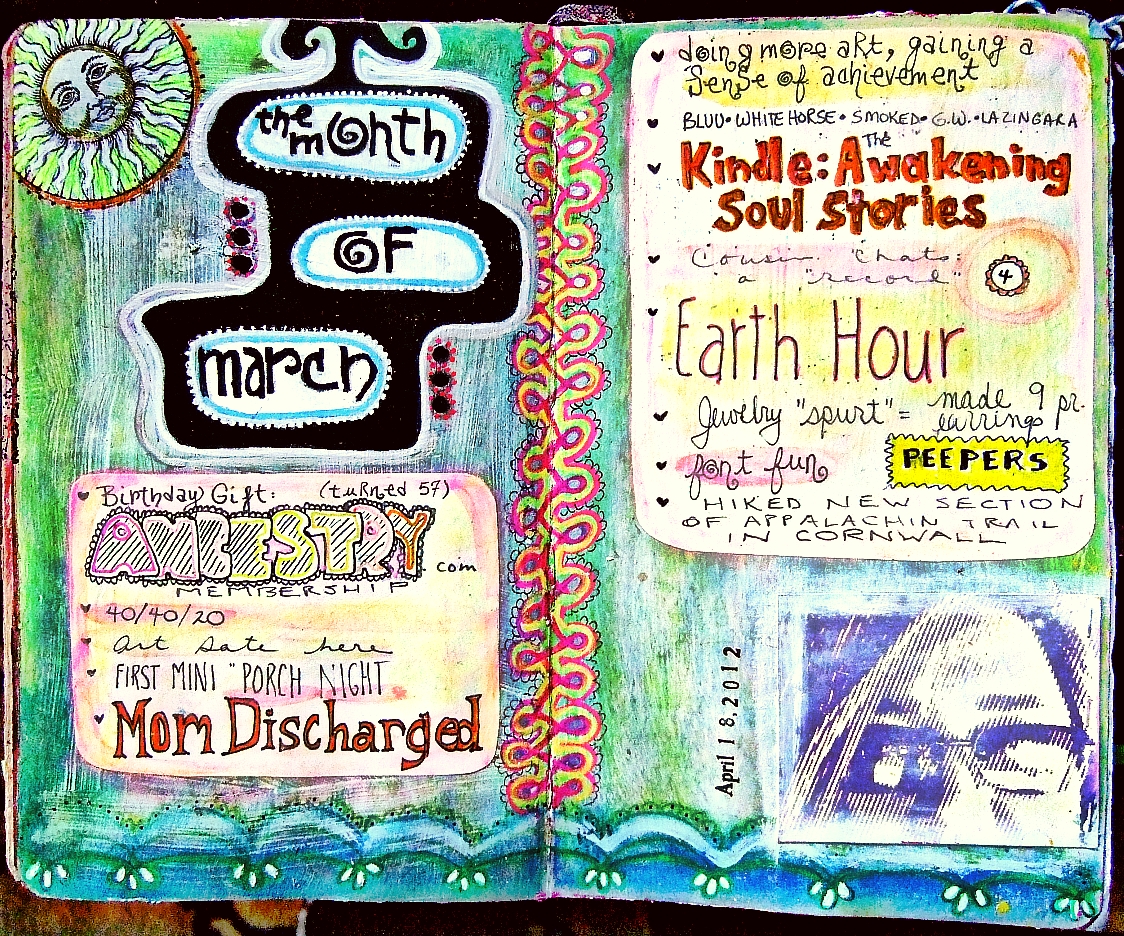 the month
OF
march
Birthday Gift: (turned 57)
ANCESTRY.com
MEMBERSHIP
40/40/20
Art Date here
FIRST MINI "PORCH NIGHT
Mom Discharged
doing more aRt, gaining a
Sense of achievement
BLUU • WHITE HORSE • SMOKED • G.W. • LA ZINGARA
Kindle: The Awakening
Soul Stories
Cousin Chats:
a "record"
4
Earth Hour
Jewelry "spurt" = made 9 pr.
earrings
font fun
PEEPERS
HIKED NEW SECTION
OF APPALACHIN TRAIL
IN CORNWALL
April 18, 2012